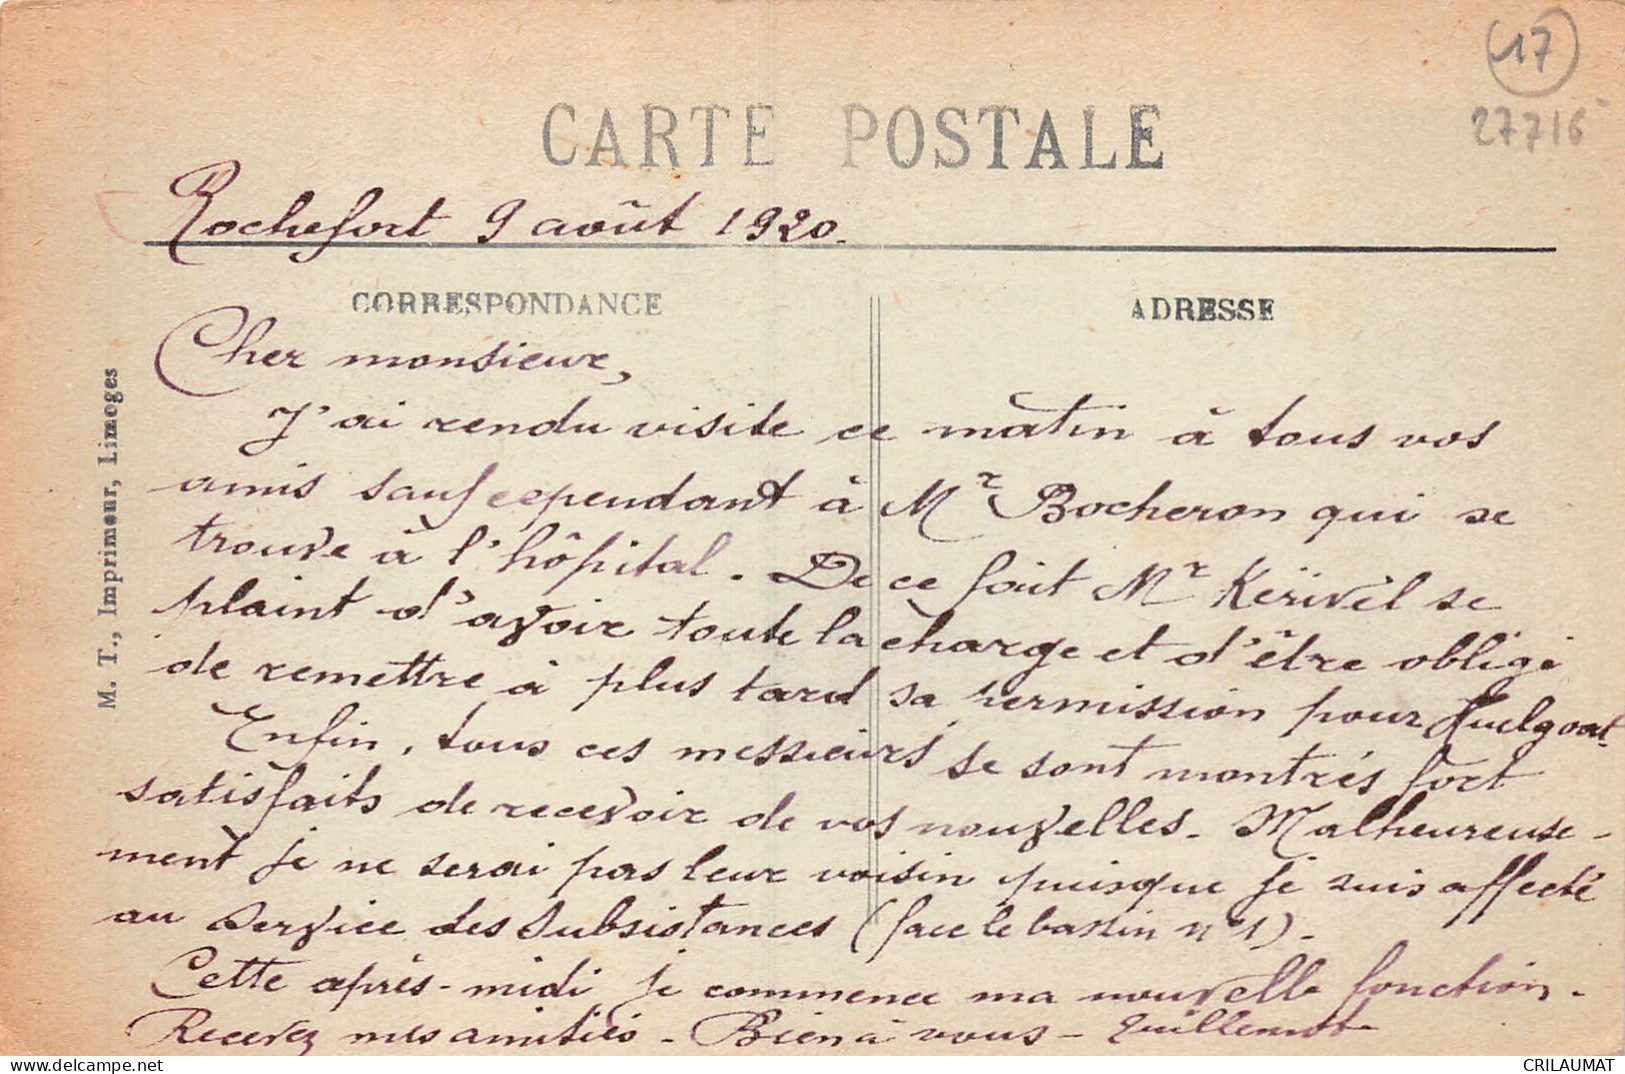 17
27716
CARTE POSTALE
Rochefort 9 août 1920.
CORRESPONDANCE
ADRESSE
Cher monsieur,
J'ai rendu visite ce matin à tous vos
amis sauf cependant à Mr Bocheron qui se
trouve à l'hôpital. De ce fait Mr Kerivel se
plaint d'avoir toute la charge et d'être obligé
de remettre à plus tard sa permission pour Huelgoat.
Enfin, tous ces messieurs se sont montrés fort
satisfaits de recevoir de vos nouvelles. Malheureuse-
ment je ne serai pas leur voisin puisque je suis affecté
au service des Subsistances (face le bassin n°1).
Cette après-midi je commence ma nouvelle fonction.
Recevez mes amitiés - Bien à vous - Guillemot
M. T., Imprimeur, Limoges
CRILAUMAT